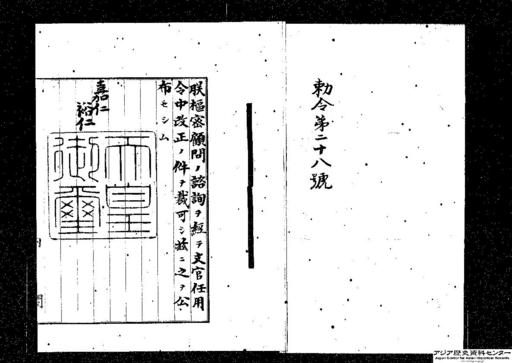 勅令第二十八號
朕樞密顧問ノ諮詢ヲ經テ文官任用
令中改正ノ件ヲ裁可シ茲ニ之ヲ公
布セシム
嘉仁
裕仁
天皇
御璽
アジア歴史資料センター
Japan Center for Asian Historical Records